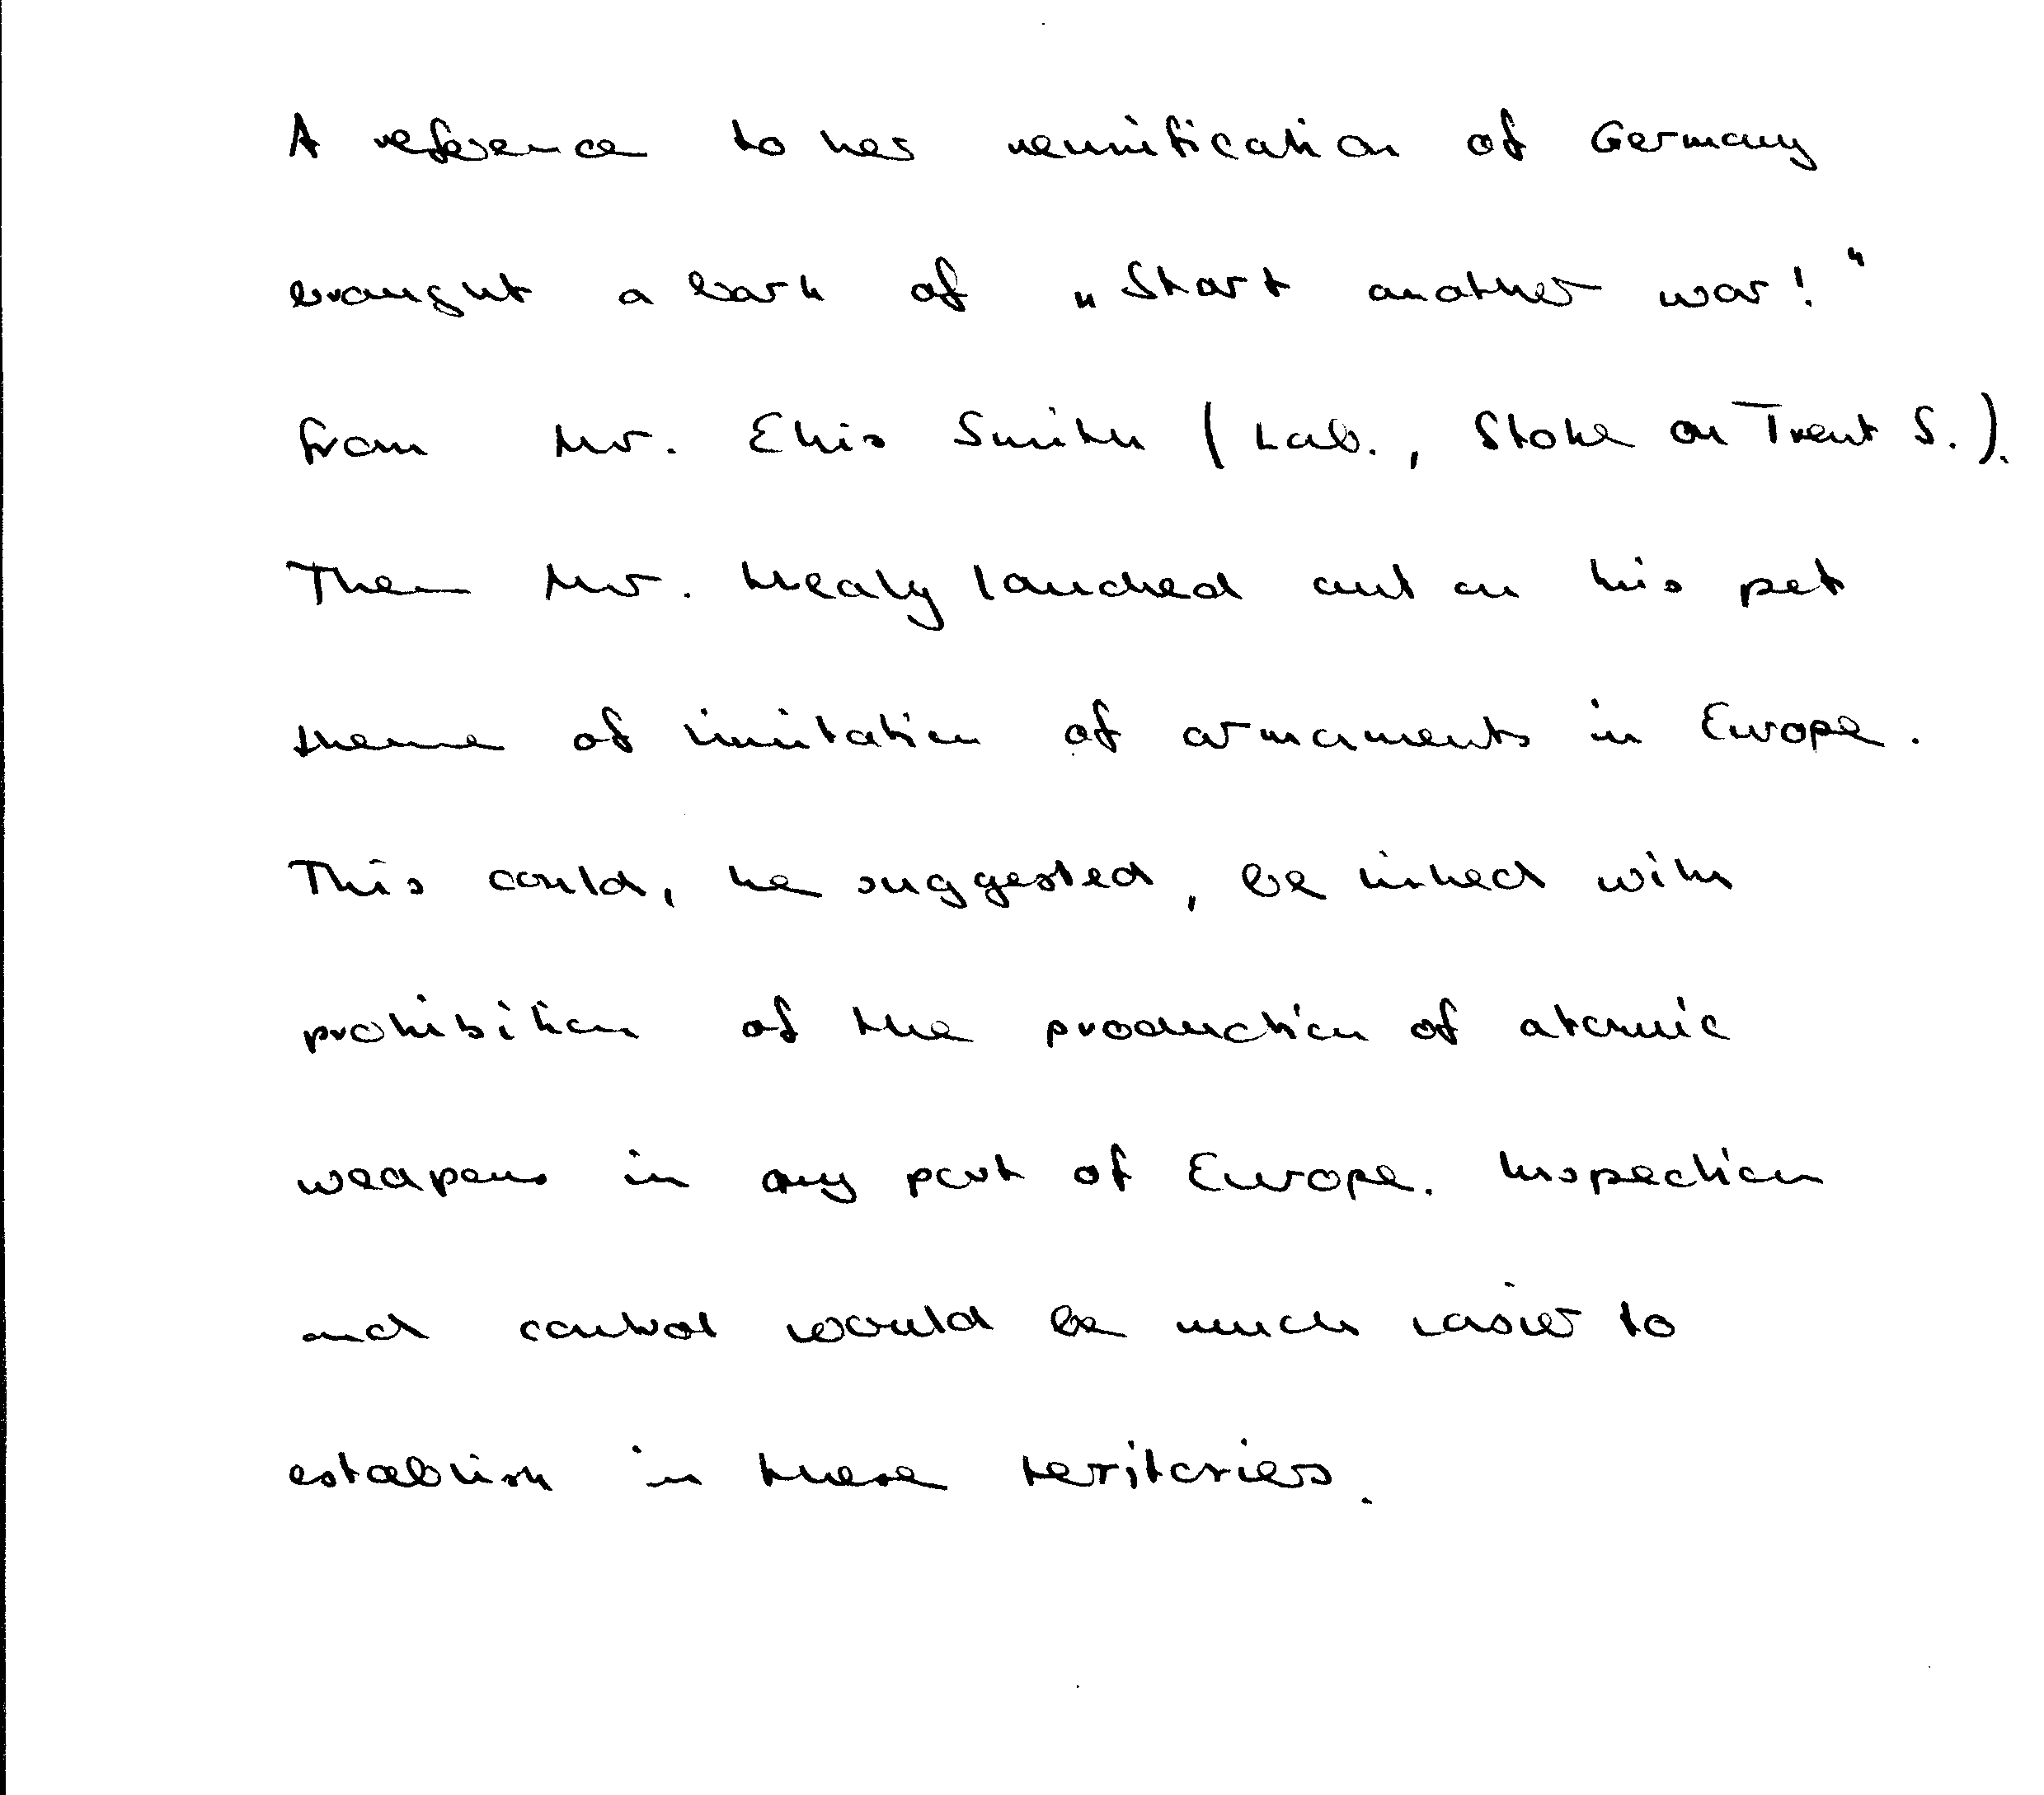 A reference to hes reunification of Germany
brought a bark of „Start another war!“
from Mr. Ellis Smith (Lab., Stoke on Trent S.).
Then Mr. Healy lauched out on his pet
theme of limitation of armaments in Europe.
This could, he suggested, be linked with
prohibition of the production of atomic
weapons in any part of Europe. Inspection
and control would be much easier to
establish in these territories.